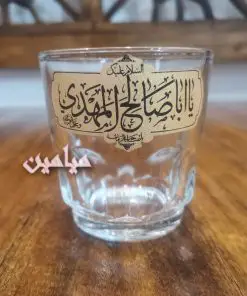 السلام علیک
یا اباصالح المهدی
میامین